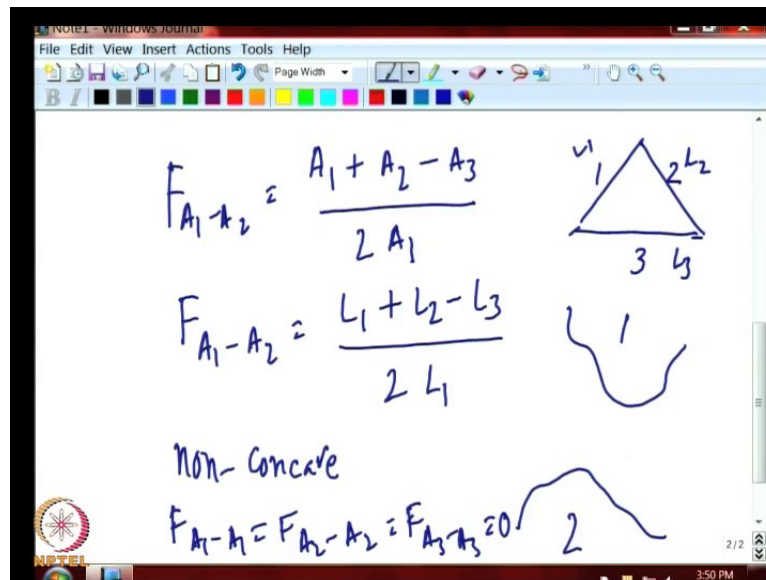 Note1 - Windows Journal
File Edit View Insert Actions Tools Help
Page Width
B I
F_{A_1-A_2} = \frac{A_1 + A_2 - A_3}{2 A_1}
1 2 L_2
3 L_3
F_{A_1-A_2} = \frac{L_1 + L_2 - L_3}{2 L_1}
1
non-concave
F_{A_1-A_1} = F_{A_2-A_2} = F_{A_3-A_3} = 0
2
NPTEL
2/2
3:50 PM